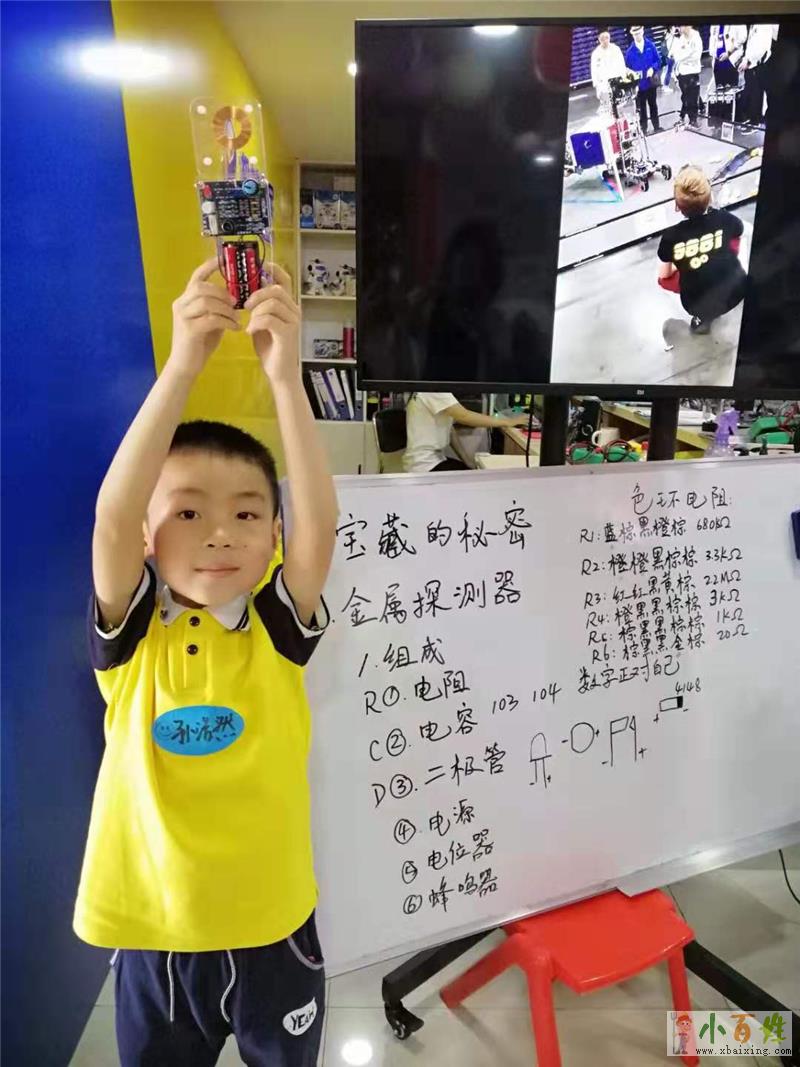 宝藏的秘密
金属探测器
1.组成
R①.电阻
C②.电容 103 104
D③.二极管
④.电源
⑤电位器
⑥蜂鸣器
色环电阻:
R1:蓝棕黑橙棕 680KΩ
R2:橙橙黑棕棕 3.3KΩ
R3:红红黑黄棕 22MΩ
R4:橙黑黑棕棕 3KΩ
R5:棕黑黑棕棕 1KΩ
R6:棕黑黑金棕 20Ω
数字正对自己
4148
- + - + - + + -
9881
YEAH
小百姓
www.xbaixing.com